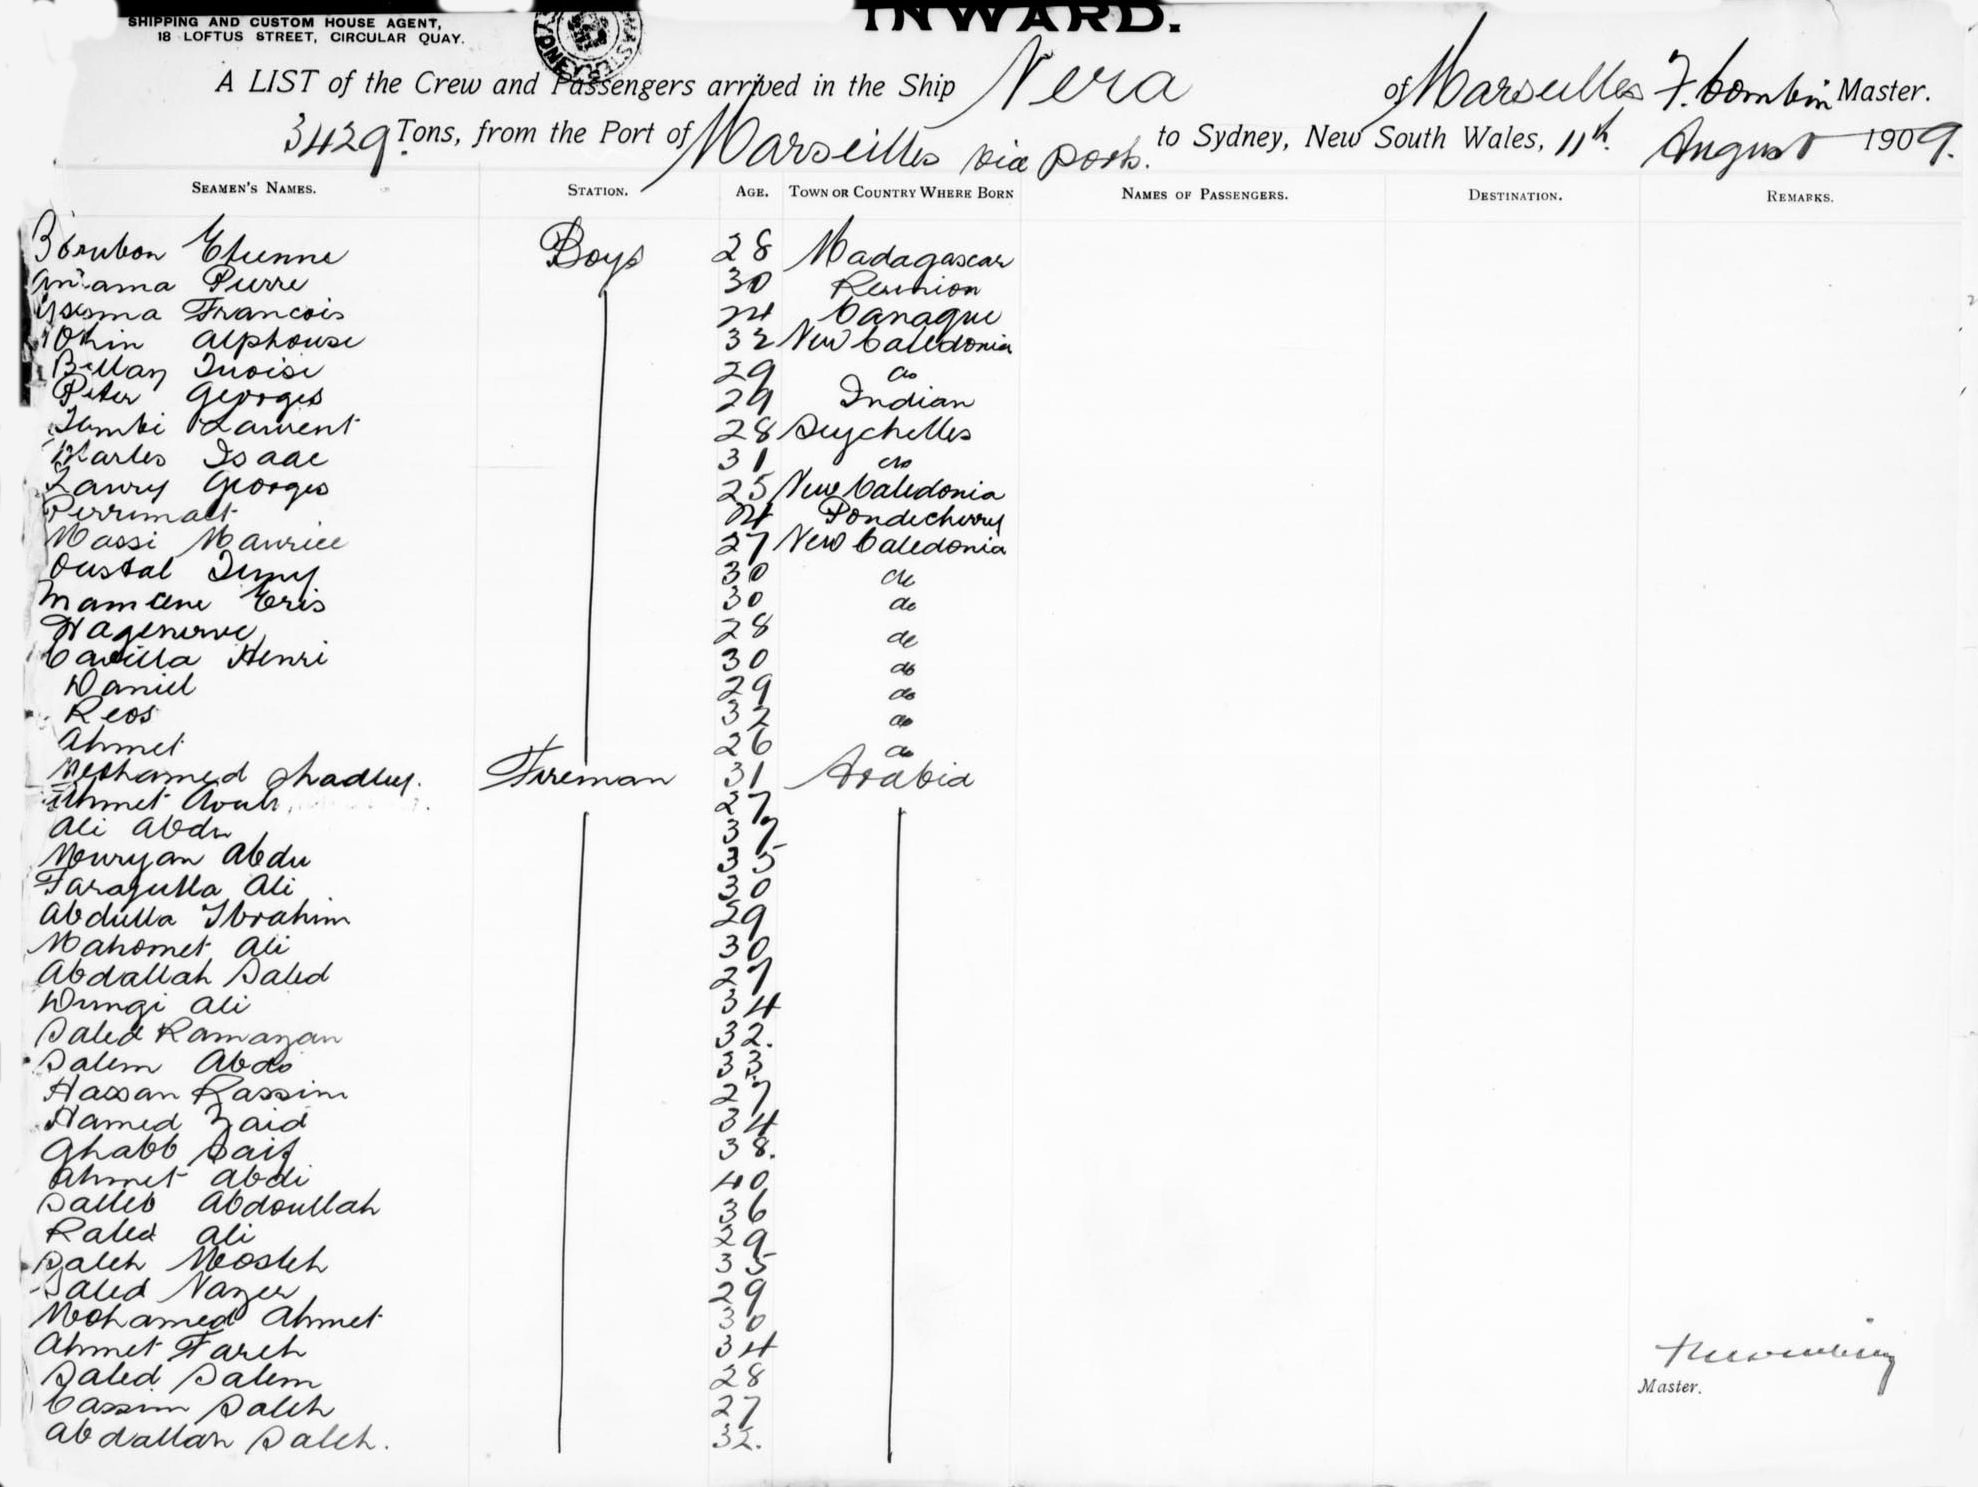 SHIPPING AND CUSTOM HOUSE AGENT,
18 LOFTUS STREET, CIRCULAR QUAY.
INWARD.
A LIST of the Crew and Passengers arrived in the Ship Nera of Marseilles F. Combin Master.
3429 Tons, from the Port of Marseilles via ports. to Sydney, New South Wales, 11th. August 1909.
SEAMEN'S NAMES. STATION. AGE. TOWN OR COUNTRY WHERE BORN NAMES OF PASSENGERS. DESTINATION. REMARKS.
Bourbon Etienne Boys 28 Madagascar
Pierre 30 Reunion
Francois 24 Canaque
Alphouse 32 New Caledonia
29 do
Peter Georges 29 Indian
Laurent 28 Seychelles
Charles Isaac 31 do
Georges 25 New Caledonia
24 Pondecherry
Massi Maurice 27 New Caledonia
Oustal 30 do
30 do
28 do
Henri 30 do
Daniel 29 do
Reos 32 do
Ahmet 26 do
Mohamed Shadley. Fireman 31 Arabia
Ahmet 27
Ali Abdu 37
Muryan Abdu 35
Faragulla Ali 30
Abdulla Ibrahim 29
Mahomet Ali 30
Abdallah Saled 27
Dungi Ali 34
Saled Ramazan 32.
Salem Abdo 33
Hassan Rassim 27
Hamed Zaid 34
Ghabb Saif 38.
Ahmet Abdi 40
Salleb Abdoullah 36
Raled Ali 29
Saleh Mosleh 35
Saled Nazer 29
Mohamed Ahmet 30
Ahmet Fareh 34
Saled Salem 28
Cassim Saleh 27
Abdallah Saleh. 32.
Master.